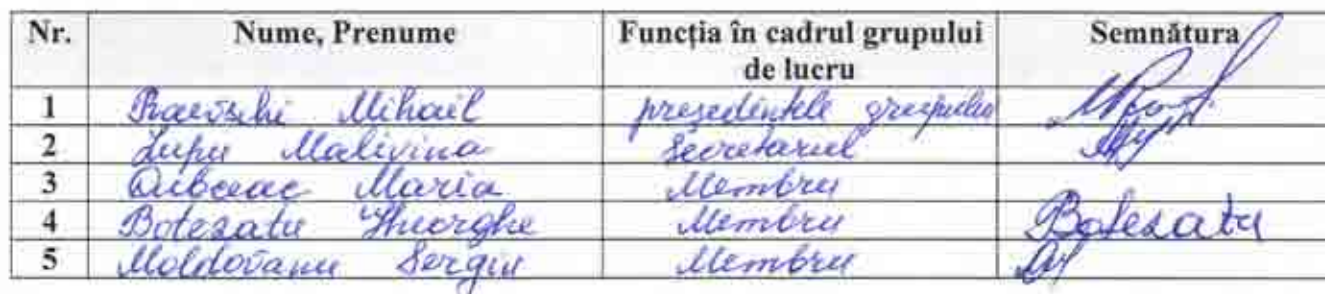 Nr. Nume, Prenume Funcția în cadrul grupului de lucru Semnătura
1 Raevschi Mihail președintele grupului
2 Lupu Malivina Secretarul
3 Maria Membru
4 Botezatu Gheorghe Membru Botezatu
5 Moldovanu Sergiu Membru